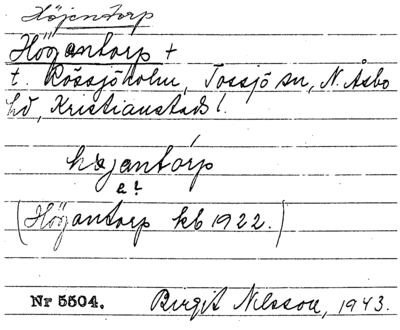 Höjentorp
Högantorp +
t. Rössjöholm, Tossjö sn, N. Åsbo
hd, Kristianstads l.
højantórp
(Höjantorp kb 1922.)
Nr 5504. Birgit Nilsson, 1943.